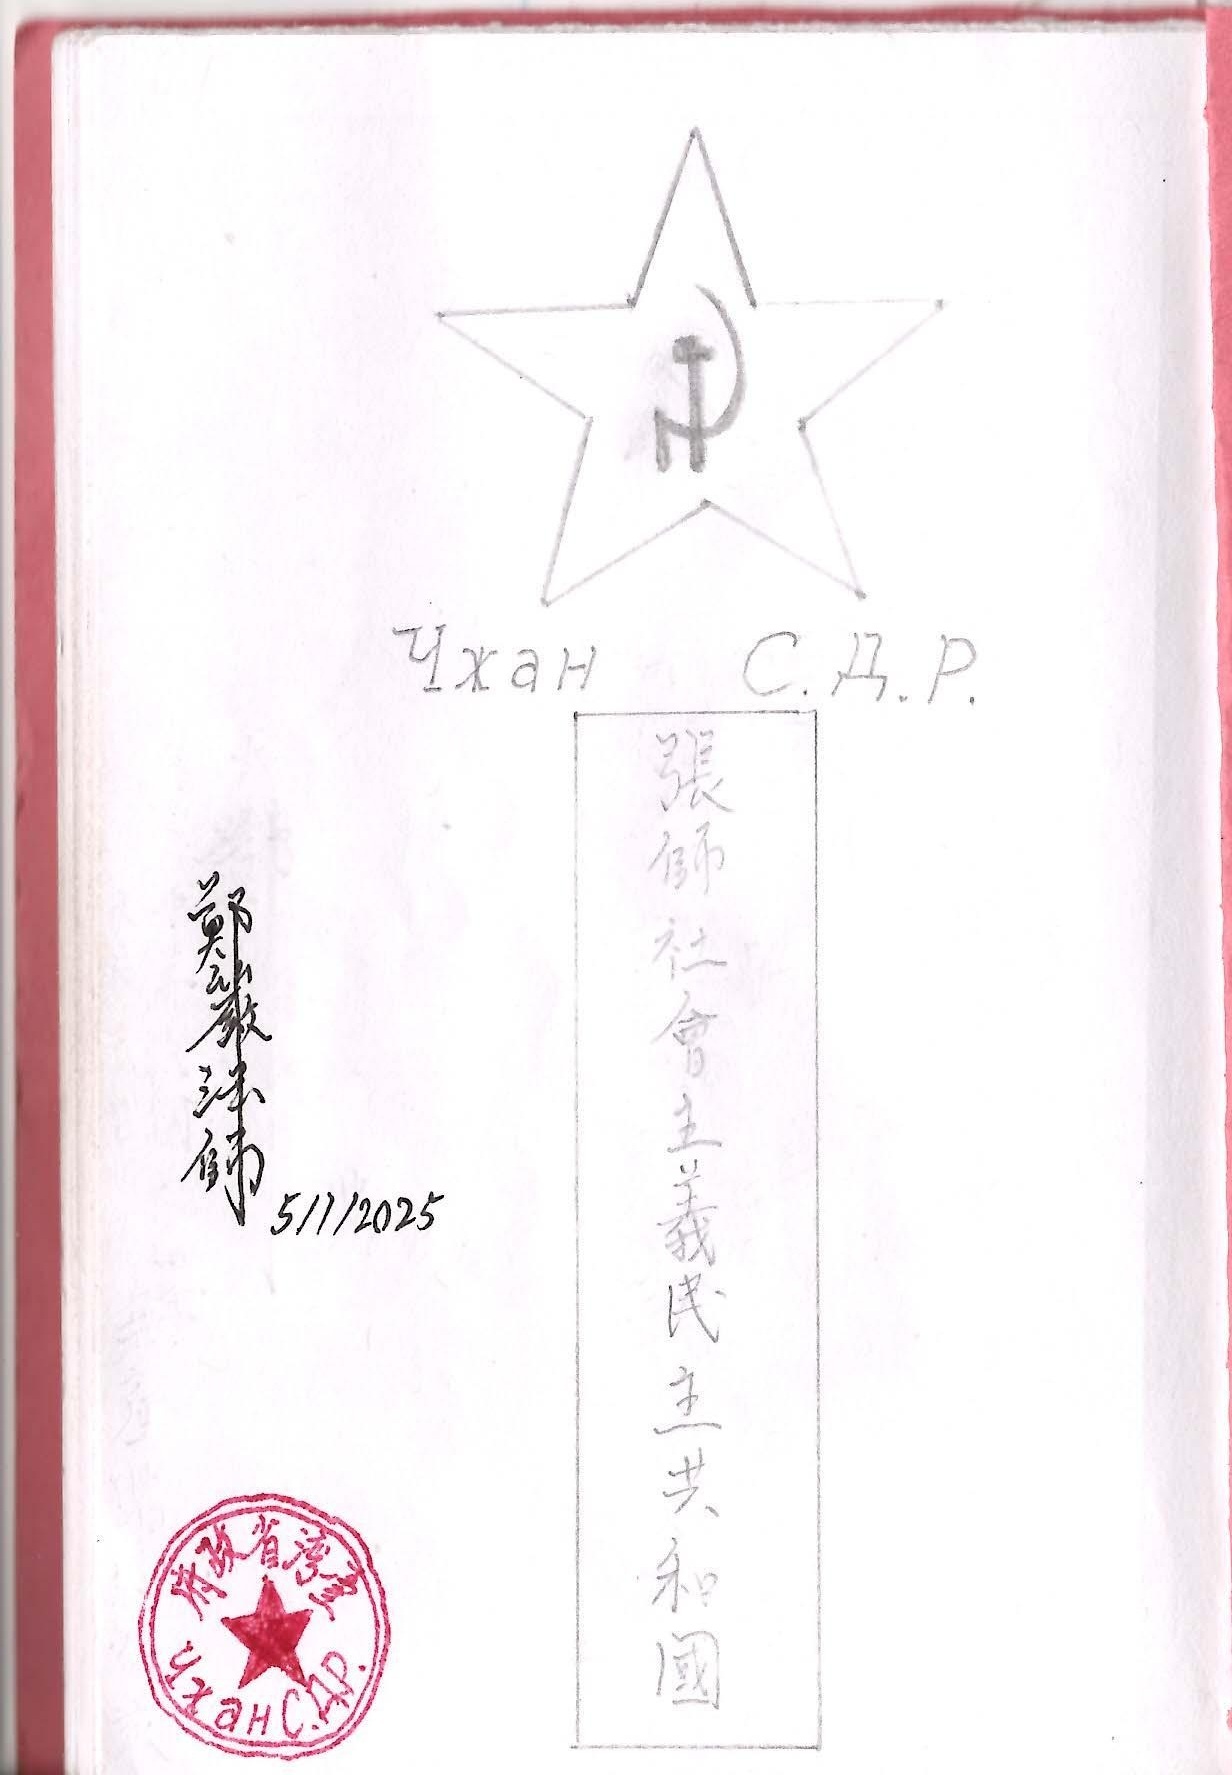 Чжан С.Д.Р.
張師社會主義民主共和國
鄭嚴法師
5/1/2025
府政省湾臺
Чжан С.Д.Р.